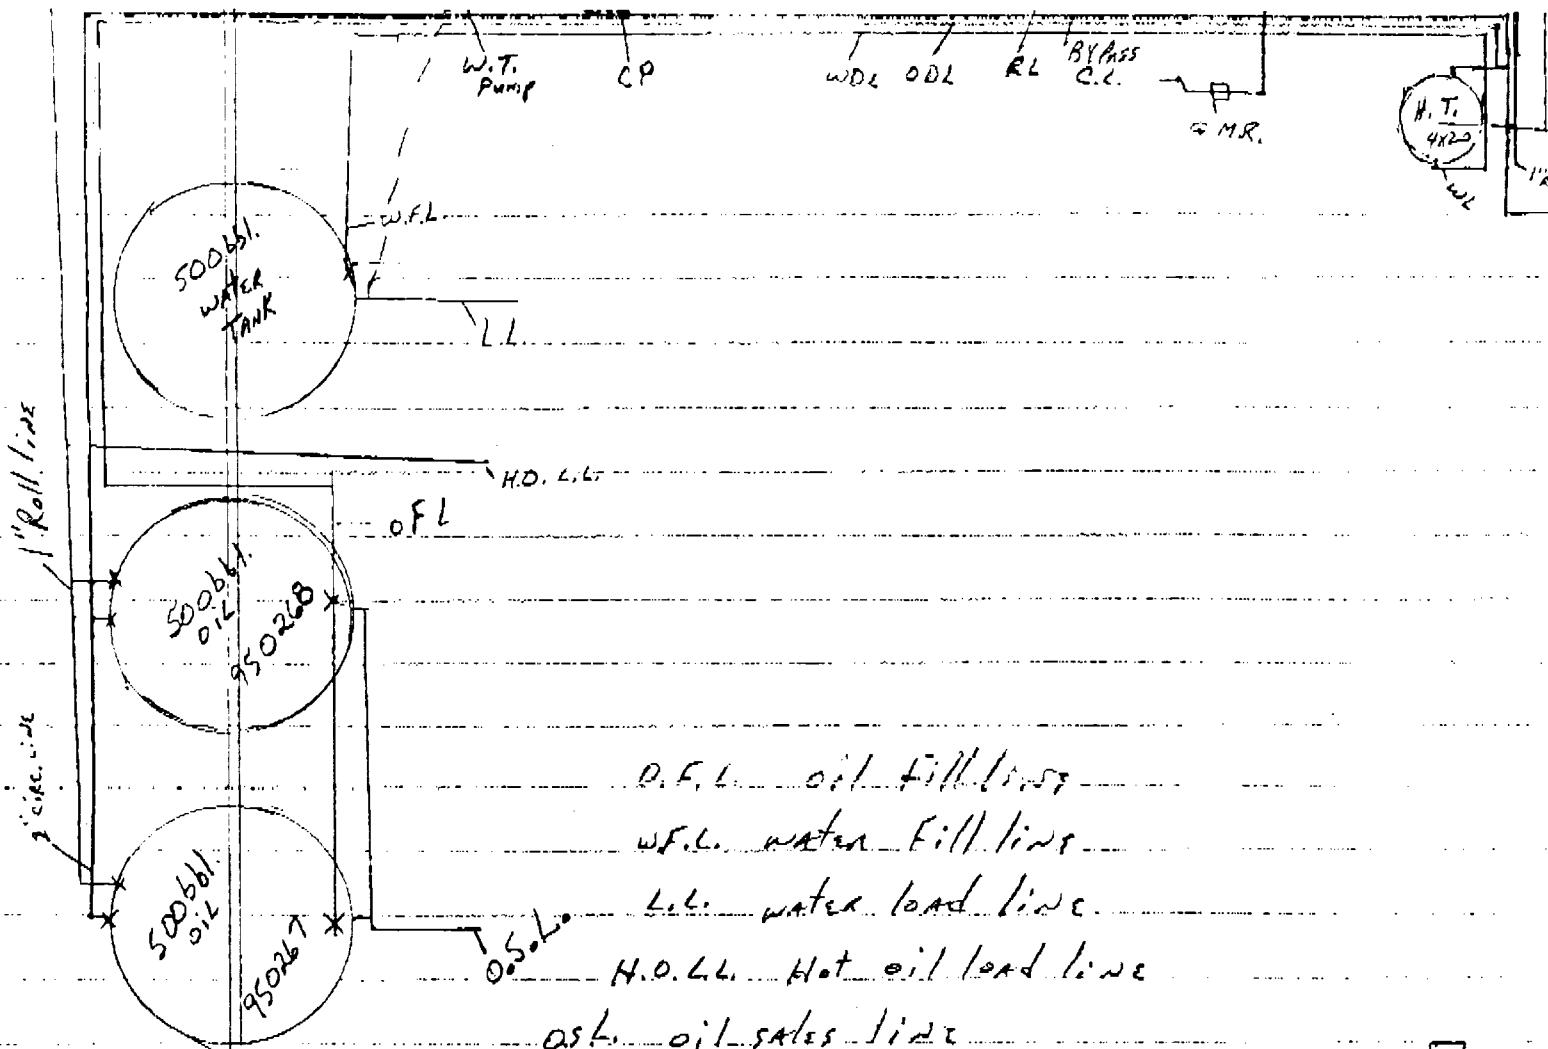 W.T.
Pump
CP
WDL
ODL
RL
BYPASS
C.L.
M.R.
H.T.
4x20
WL
W.F.L.
500 bbl.
WATER
TANK
L.L.
H.O.L.L.
1" Roll line
O F L
500 bbl.
OIL
950268
2" CIRC. LINE
500 bbl.
OIL
950267
O.S.L.
O.F.L. oil fill line
W.F.L. water Fill line
L.L. water load line
H.O.L.L. Hot oil load line
OSL. oil sales line